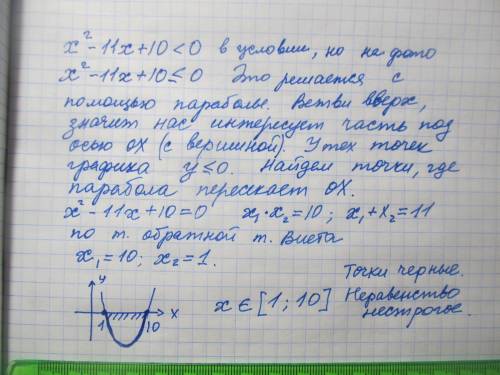 x² - 11x + 10 < 0 в условии, но на фото
x² - 11x + 10 ≤ 0 Это решается с
помощью параболы. Ветви вверх,
значит нас интересует часть под
осью OX (с вершиной). У тех точек
графика y ≤ 0. Найдем точки, где
парабола пересекает OX.
x² - 11x + 10 = 0 x₁·x₂ = 10; x₁ + x₂ = 11
по т. обратной т. Виета
x₁ = 10; x₂ = 1.
Точки черные.
Неравенство
нестрогое.
x ∈ [1; 10]
y
1 10 x